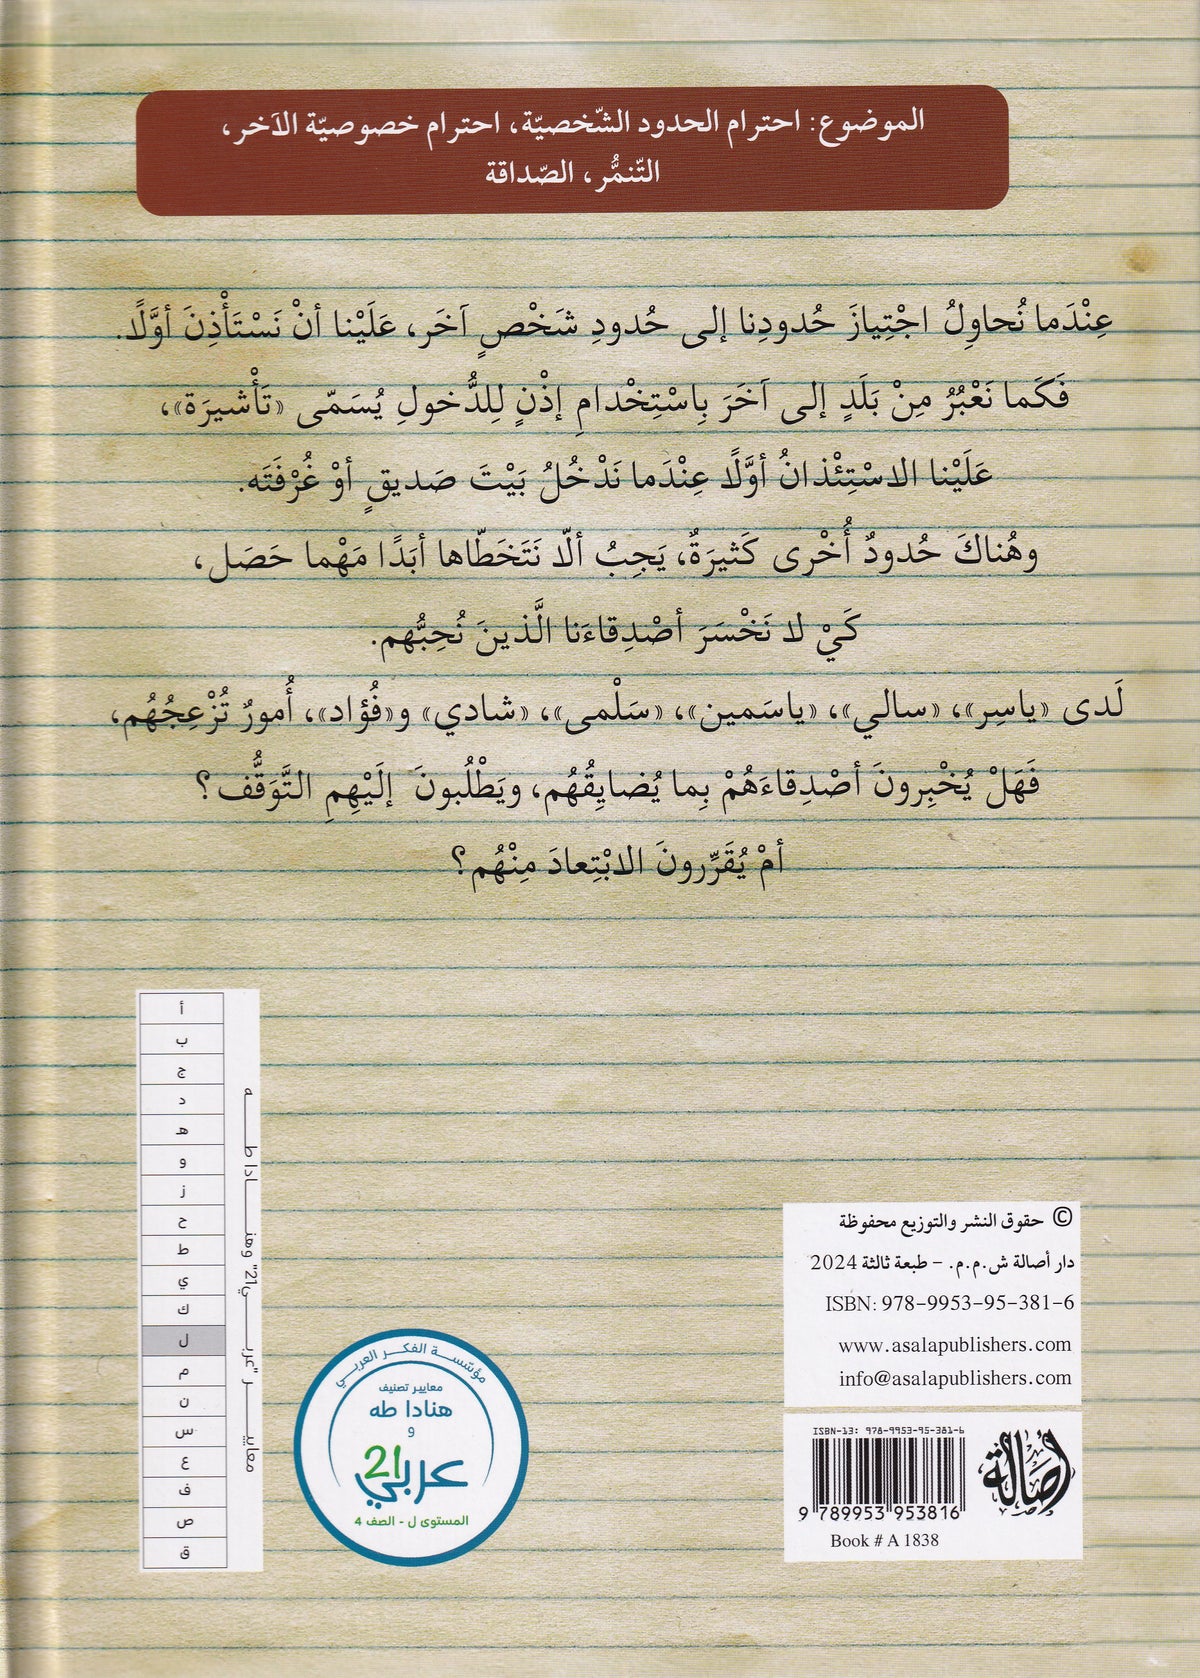 الموضوع: احترام الحدود الشّخصيّة، احترام خصوصيّة الآخر،
التّنمُّر، الصّداقة
عِنْدَما نُحاوِلُ اجْتِيازَ حُدودِنا إلى حُدودِ شَخْصٍ آخَر، عَلَيْنا أنْ نَسْتَأْذِنَ أوَّلًا.
فَكَما نَعْبُرُ مِنْ بَلَدٍ إلى آخَرَ بِاسْتِخْدامِ إذْنٍ لِلدُّخولِ يُسَمّى «تَأْشيرَة»،
عَلَيْنا الاسْتِئْذانُ أوَّلًا عِنْدَما نَدْخُلُ بَيْتَ صَديقٍ أوْ غُرْفَتَه.
وهُناكَ حُدودٌ أُخْرى كَثيرَةٌ، يَجِبُ ألّا نَتَخَطّاها أبَدًا مَهْما حَصَل،
كَيْ لا نَخْسَرَ أصْدِقاءَنا الَّذينَ نُحِبُّهم.
لَدى «ياسِر»، «سالي»، «ياسَمين»، «سَلْمى»، «شادي» و«فُؤاد»، أُمورٌ تُزْعِجُهُم،
فَهَلْ يُخْبِرونَ أصْدِقاءَهُمْ بِما يُضايِقُهُم، ويَطْلُبونَ إلَيْهِمِ التَّوَقُّف؟
أمْ يُقَرِّرونَ الابْتِعادَ مِنْهُم؟
أ
ب
ج
د
هـ
و
ز
ح
ط
ي
ك
ل
م
ن
س
ع
ف
ص
ق
معاييـــر "عربـــي21" وهنـــادا طـــه
مؤسّسة الفكر العربي
معايير تصنيف
هنادا طه
و
عربي 21
المستوى ل - الصف 4
© حقوق النشر والتوزيع محفوظة
دار أصالة ش.م.م. - طبعة ثالثة 2024
ISBN: 978-9953-95-381-6
www.asalapublishers.com
info@asalapublishers.com
ISBN-13: 978-9953-95-381-6
9 789953 953816
Book # A 1838
أصالة